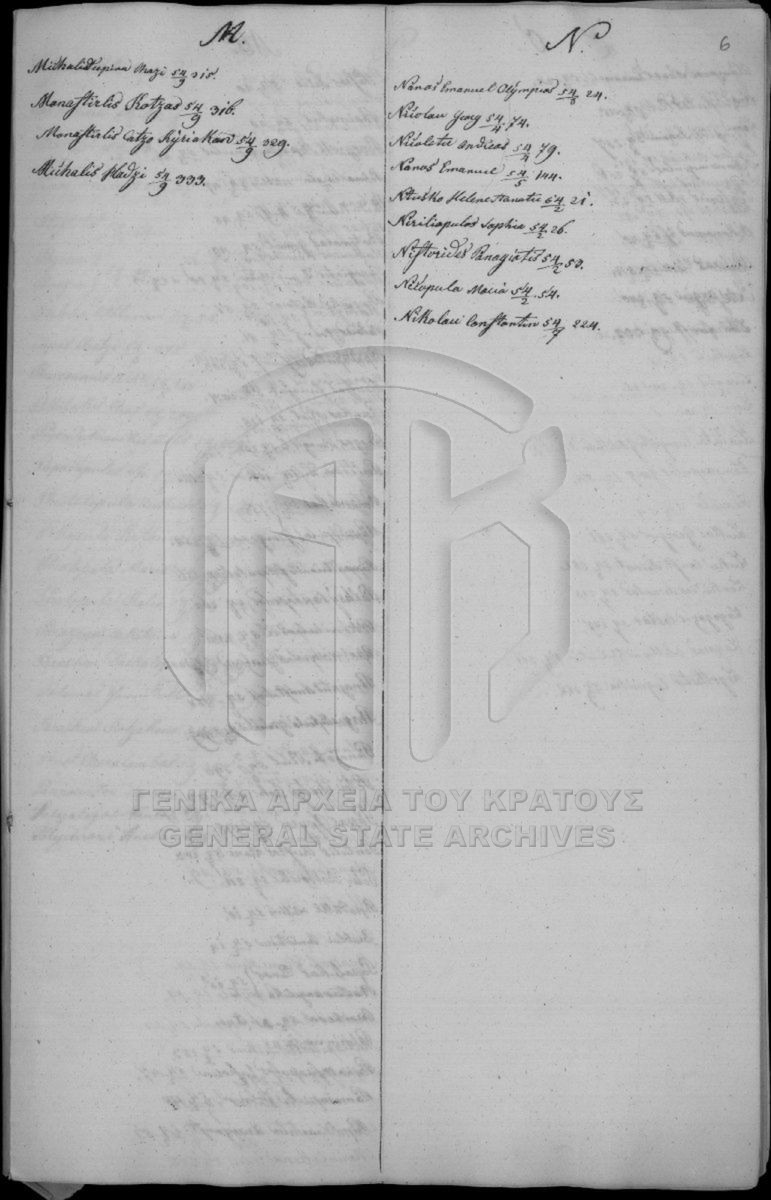 M.
Michalis Hazi 54/9 315.
Monastirlis Kotzas 54/9 316.
Monastirlis Catzo Kÿriakon 54/9 329.
Michalis Hadzi 54/9 333.
N.
6
Nanos Emanuel Olÿmpios 54/3 24.
Nicolau Georg 54/4 74.
Nicoletti Andreas 54/4 79.
Nanos Emanuel 54/5 144.
Helene 54/2 21.
Sophia 54/2 26.
Nistorides Panagiotis 54/2 53.
Nicopula Maria 54/2 54.
Nikolau Constantin 54/7 224.
ΓΕΝΙΚΑ ΑΡΧΕΙΑ ΤΟΥ ΚΡΑΤΟΥΣ
GENERAL STATE ARCHIVES